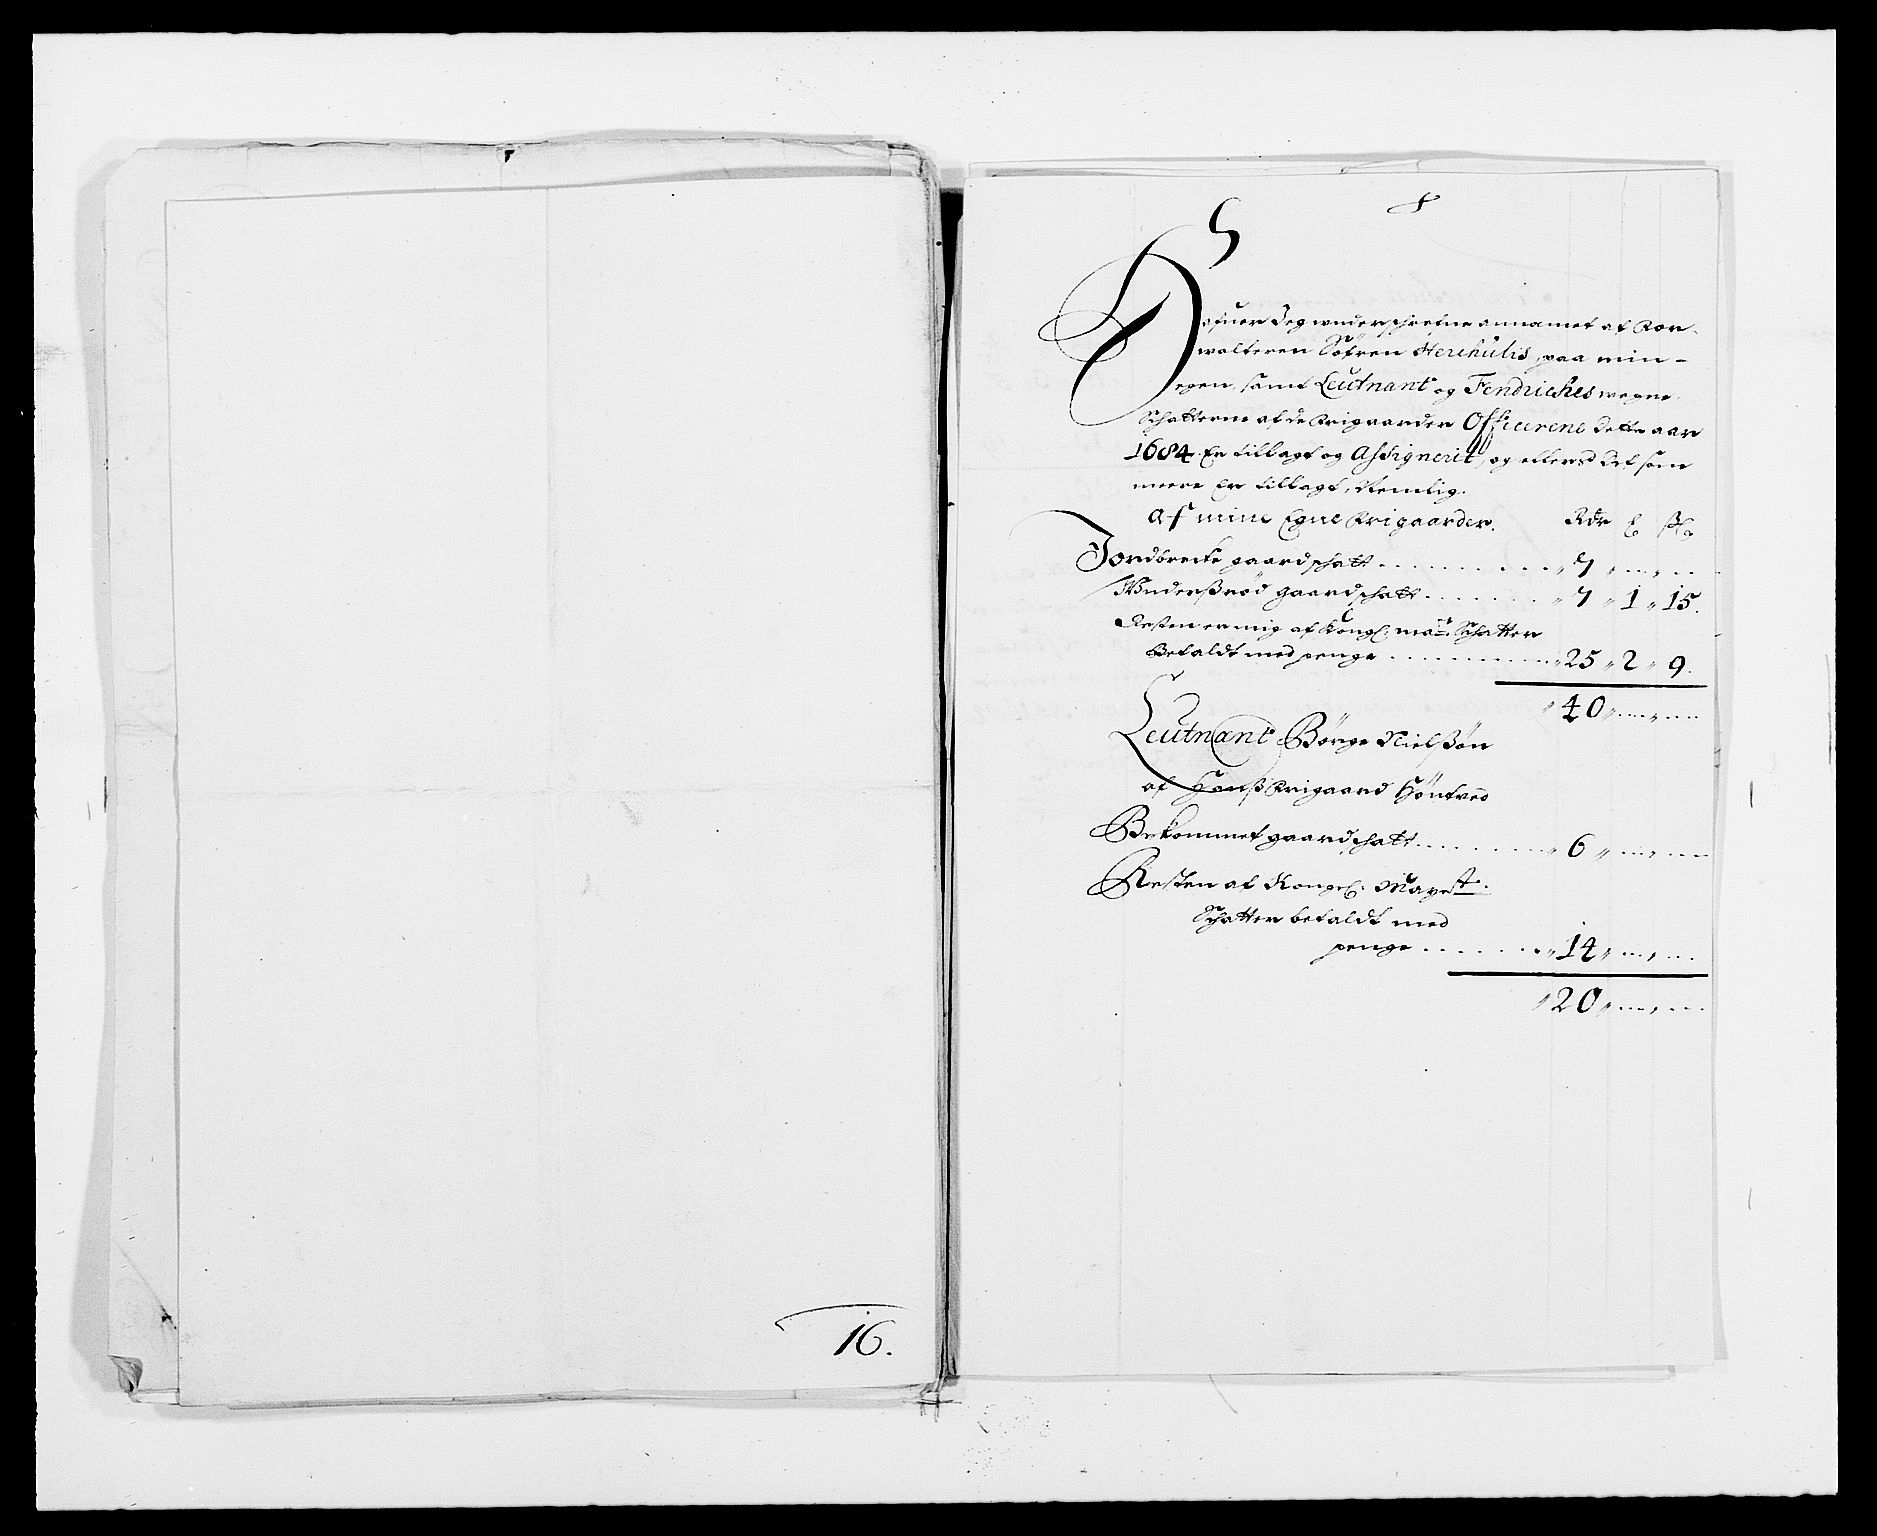 16.
Hafuer Jeg underschrefne annamet af For-
walteren Söfren Herchulis, paa min
egen, samt Leutnant og Fendriches wegne
Schatterne af de Krigaarder Officerene dette aar
1684 Er tillagt og Assignerit, og ellers det som
meere Er tillagt, Nemlig.
Af mine Egne Krigaarder. Rdr ß
Jordbrecke gaardschatt . . . . . . 7
Wnderßrød gaardschatt . . . . . . 7 1 15.
Resten er mig af Kongl: maytt: Schatter
Betaldt med penge . . . . . . 25 2 9.
40
Leutnant Børge Nielßøn
af Krigaard
Bekommet gaardschatt . . . . . . 6
Resten af Kongel: Mayestt:
Schatter betaldt med
penge . . . . . . 14
20